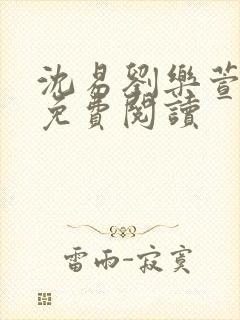 沈易劉樂萱
免費閱讀
雷雨-寂寞